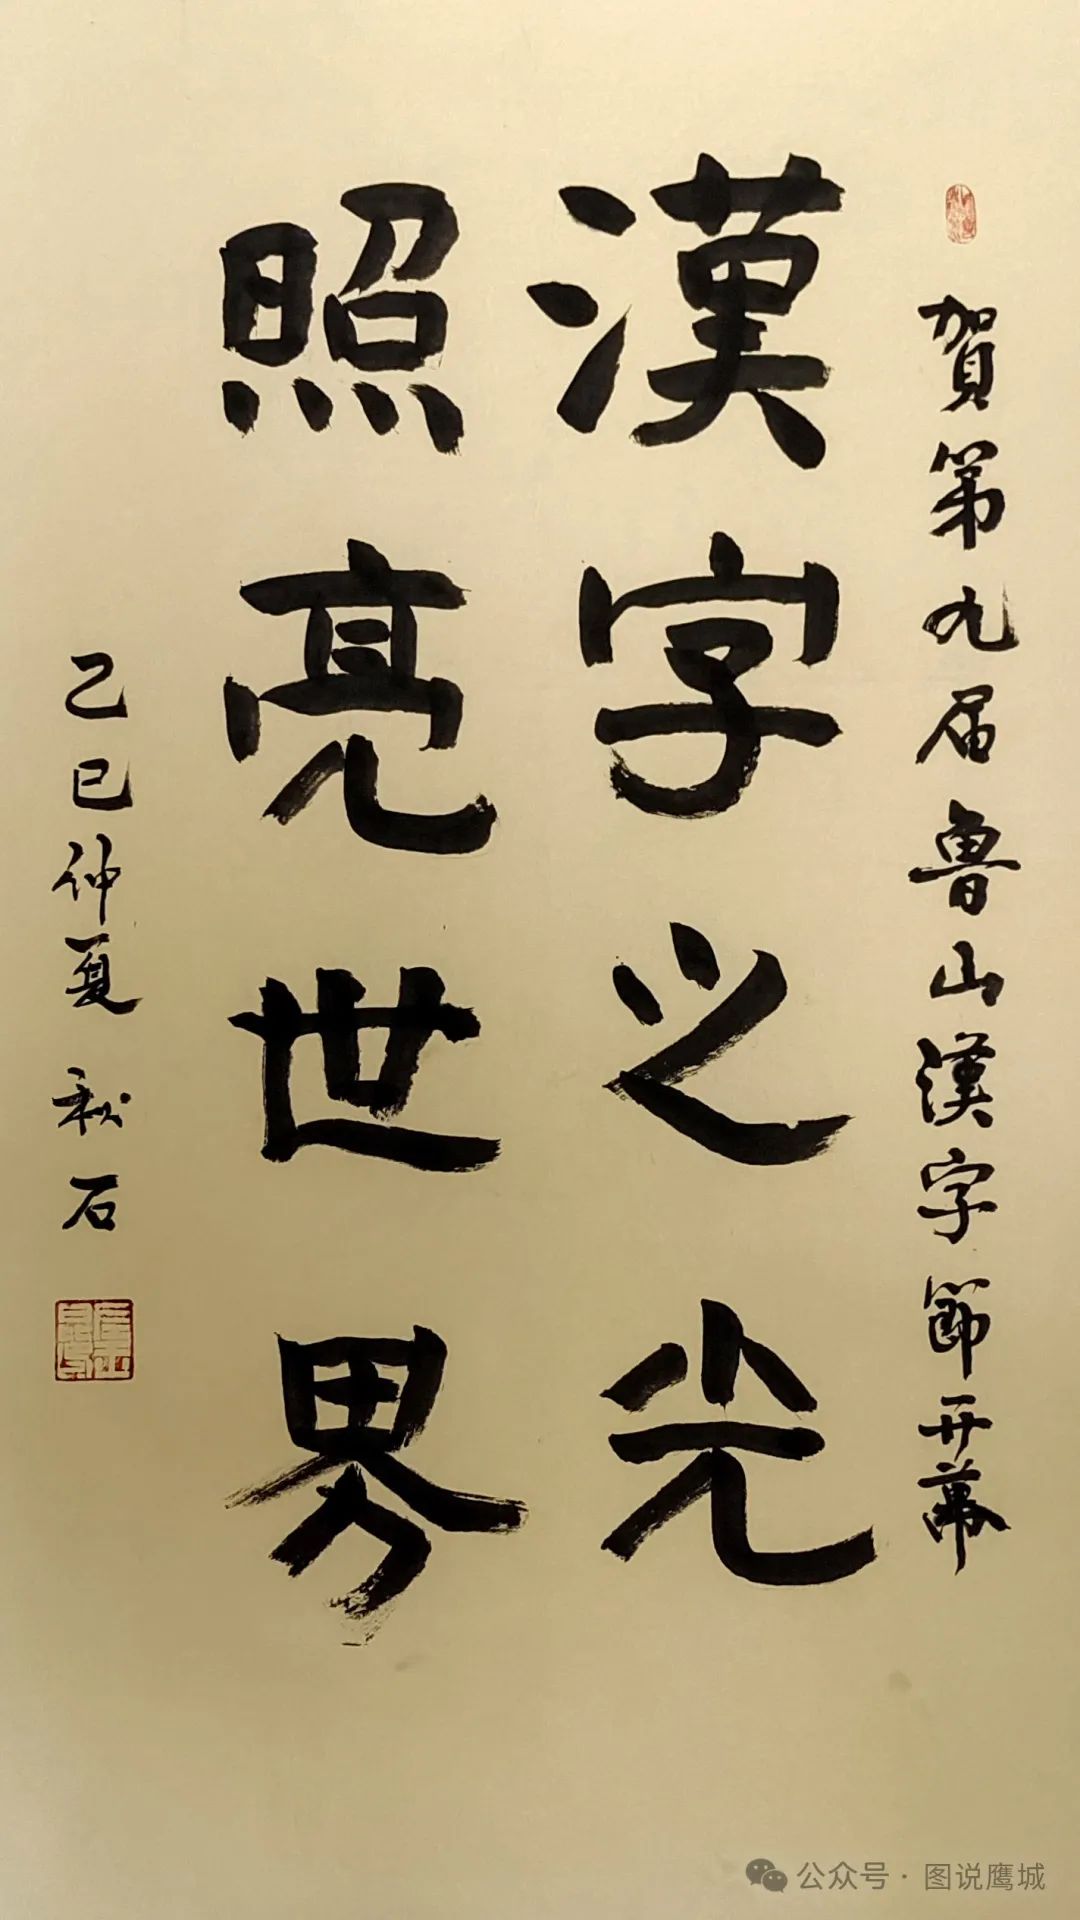 賀第九届魯山漢字節开幕
漢字之光
照亮世界
乙巳仲夏 秋石
公众号·图说鹰城